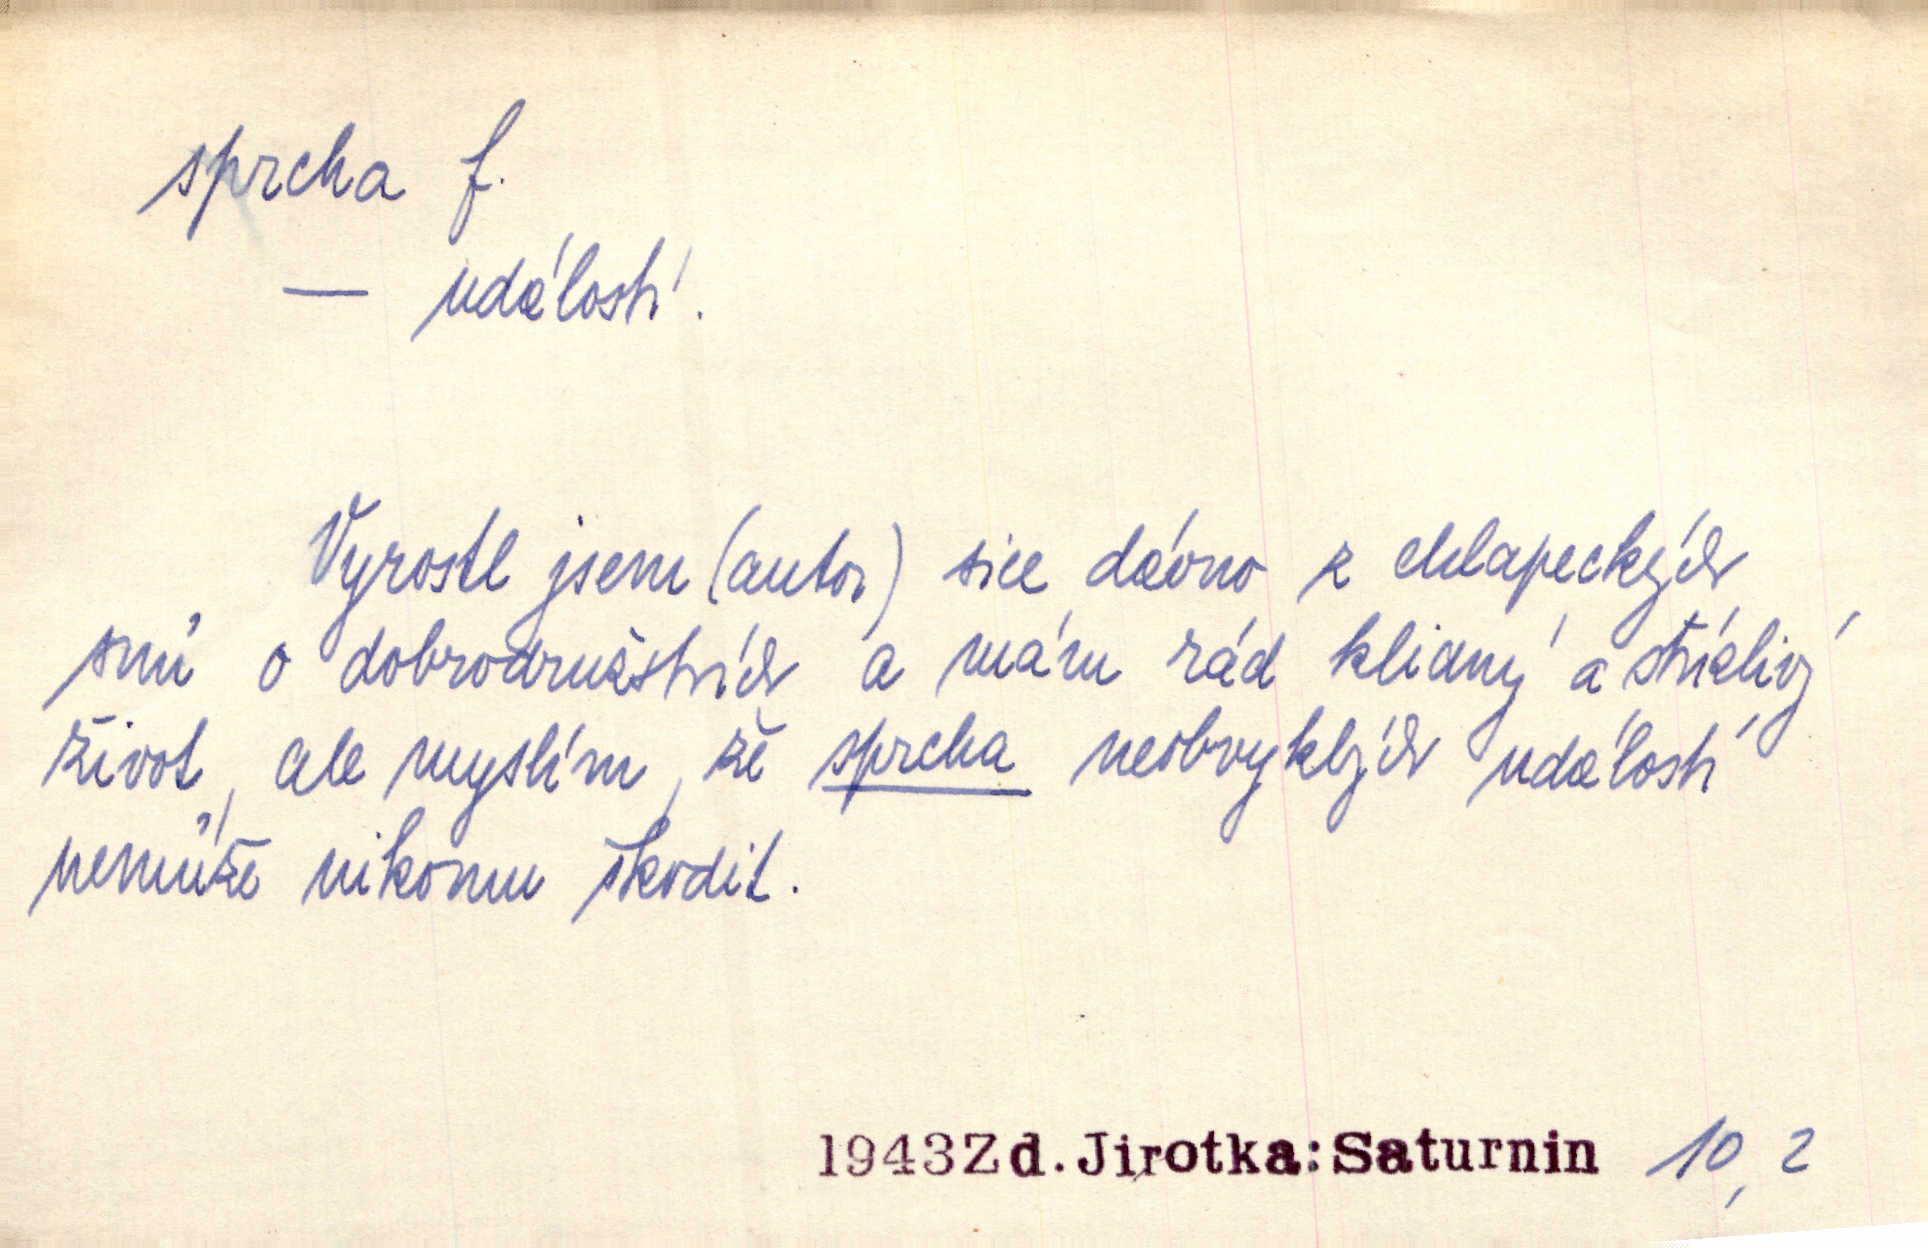 sprcha f.
— událostí.
Vyrostl jsem (autor) sice dávno z chlapeckých
snů o dobrodružstvích a mám rád klidný a střízlivý
život, ale myslím, že sprcha neobvyklých událostí
nemůže nikomu škodit.
1943 Zd. Jirotka: Saturnin 10, 2